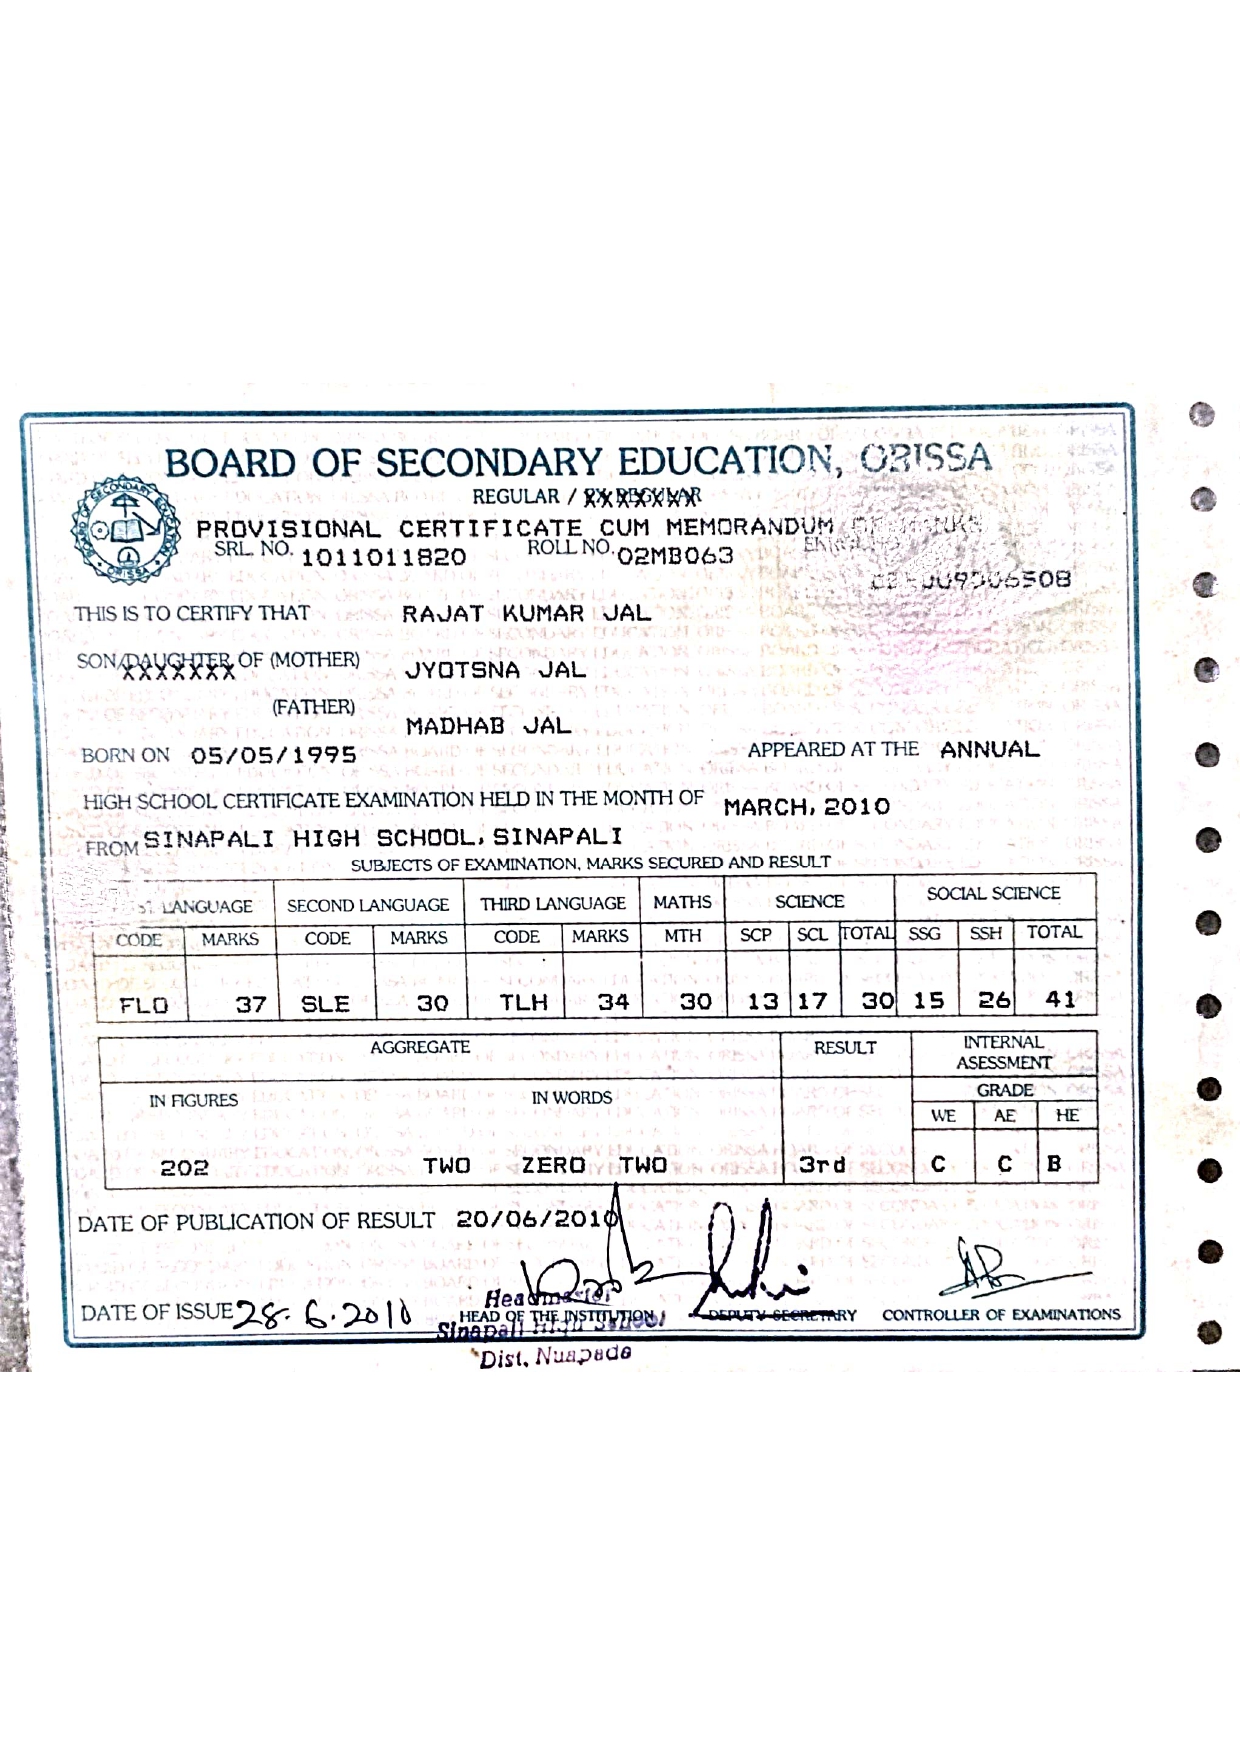 BOARD OF SECONDARY EDUCATION, ORISSA
REGULAR /
PROVISIONAL CERTIFICATE CUM MEMORANDUM OF MARKS
SRL. NO. 1011011820 ROLL NO. 02MB063
THIS IS TO CERTIFY THAT RAJAT KUMAR JAL
SON/DAUGHTER OF (MOTHER) JYOTSNA JAL
(FATHER) MADHAB JAL
BORN ON 05/05/1995 APPEARED AT THE ANNUAL
HIGH SCHOOL CERTIFICATE EXAMINATION HELD IN THE MONTH OF MARCH, 2010
FROM SINAPALI HIGH SCHOOL, SINAPALI
SUBJECTS OF EXAMINATION, MARKS SECURED AND RESULT
LANGUAGE SECOND LANGUAGE THIRD LANGUAGE MATHS SCIENCE SOCIAL SCIENCE
CODE MARKS CODE MARKS CODE MARKS MTH SCP SCL TOTAL SSG SSH TOTAL
FLO 37 SLE 30 TLH 34 30 13 17 30 15 26 41
AGGREGATE RESULT INTERNAL ASESSMENT
IN FIGURES IN WORDS GRADE
WE AE HE
202 TWO ZERO TWO 3rd C C B
DATE OF PUBLICATION OF RESULT 20/06/2010
DATE OF ISSUE 28.6.2010
Headmaster
HEAD OF THE INSTITUTION DEPUTY SECRETARY CONTROLLER OF EXAMINATIONS
Sinapali High School
Dist, Nuapada